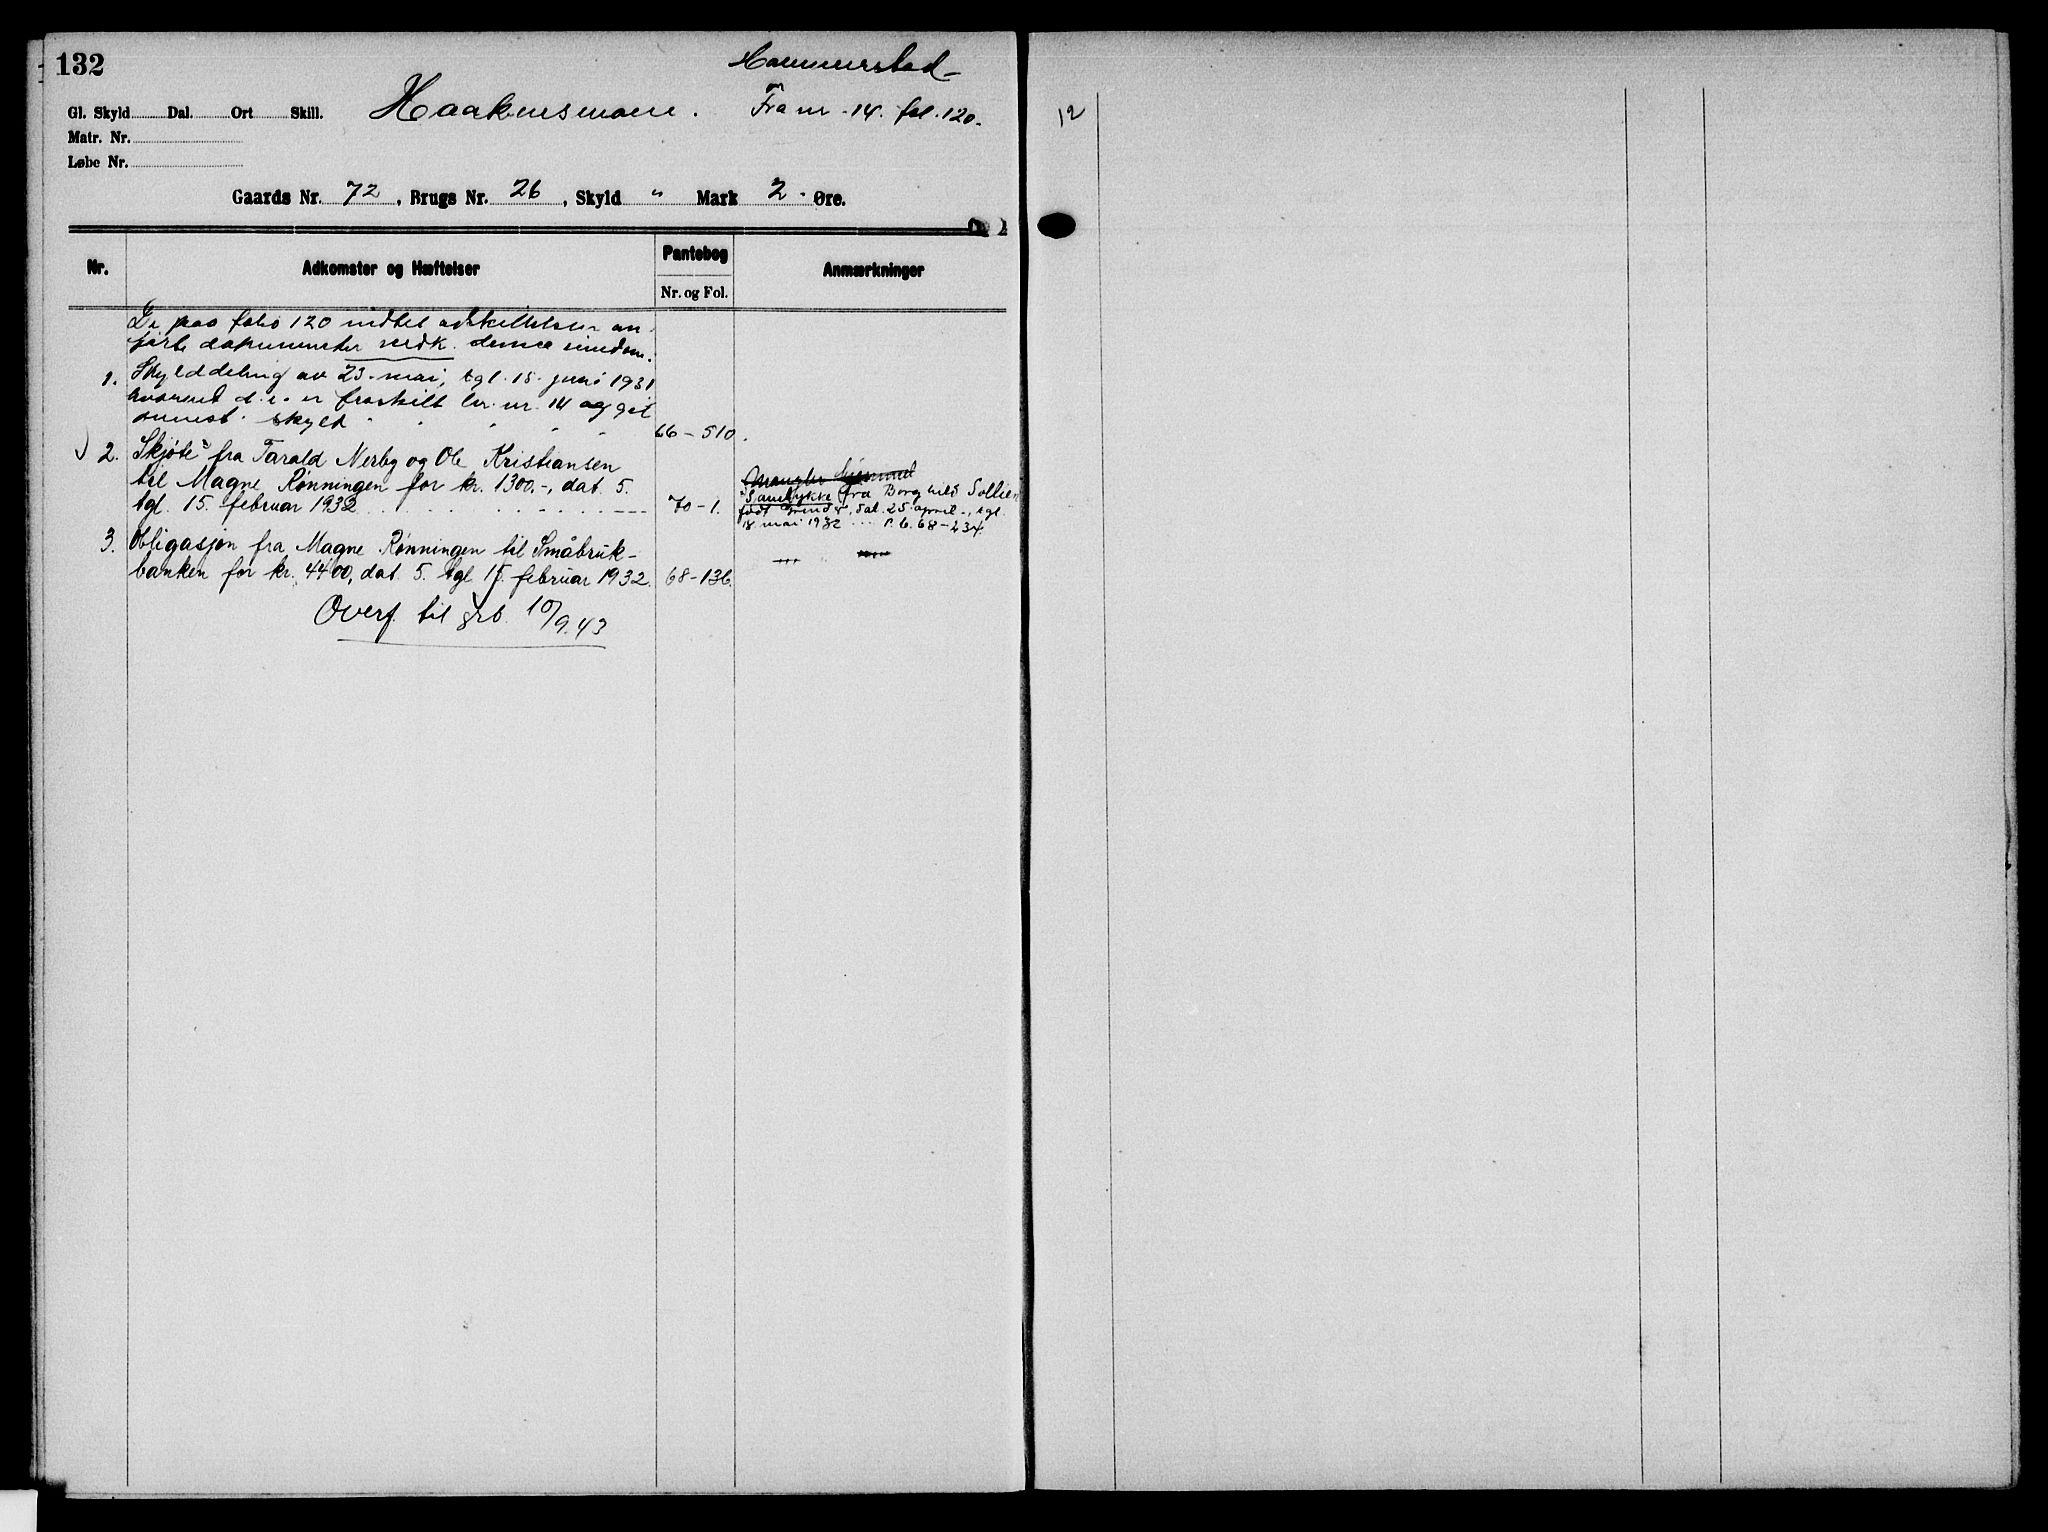 132
Hammerstad
Gl. Skyld Dal. Ort Skill. Haakensmoen. Fra nr. 14. fol. 120.
Matr. Nr.
Løbe Nr.
Gaards Nr. 72, Brugs Nr. 26, Skyld " Mark 2 Øre.
Nr. Adkomster og Hæftelser Pantebog Anmærkninger
Nr. og Fol.
De paa folio 120 indtil adskillelsen an-
førte dokumenter vedk. denne eiendom.
1. Skylddeling av 23. mai, tgl. 15. juni 1931
hvorved d. e. er fraskilt br. nr. 14 og git
skyld 66-510.
2. Skjøte fra Tarald Nerby og Ole Kristiansen
til Magne Rønningen for kr. 1300.-, dat. 5.
tgl. 15. februar 1932 70-1.
Mangler hjemmel
Samtykke fra Borghild Sollien
født , dat. 25. april -, tgl.
18. mai 1932 ... P.b. 68-234.
3. Obligasjon fra Magne Rønningen til Småbruk-
banken for kr. 4400, dat. 5. tgl. 15. februar 1932. 68-136.
Overf. til grb. 10/9.43
12